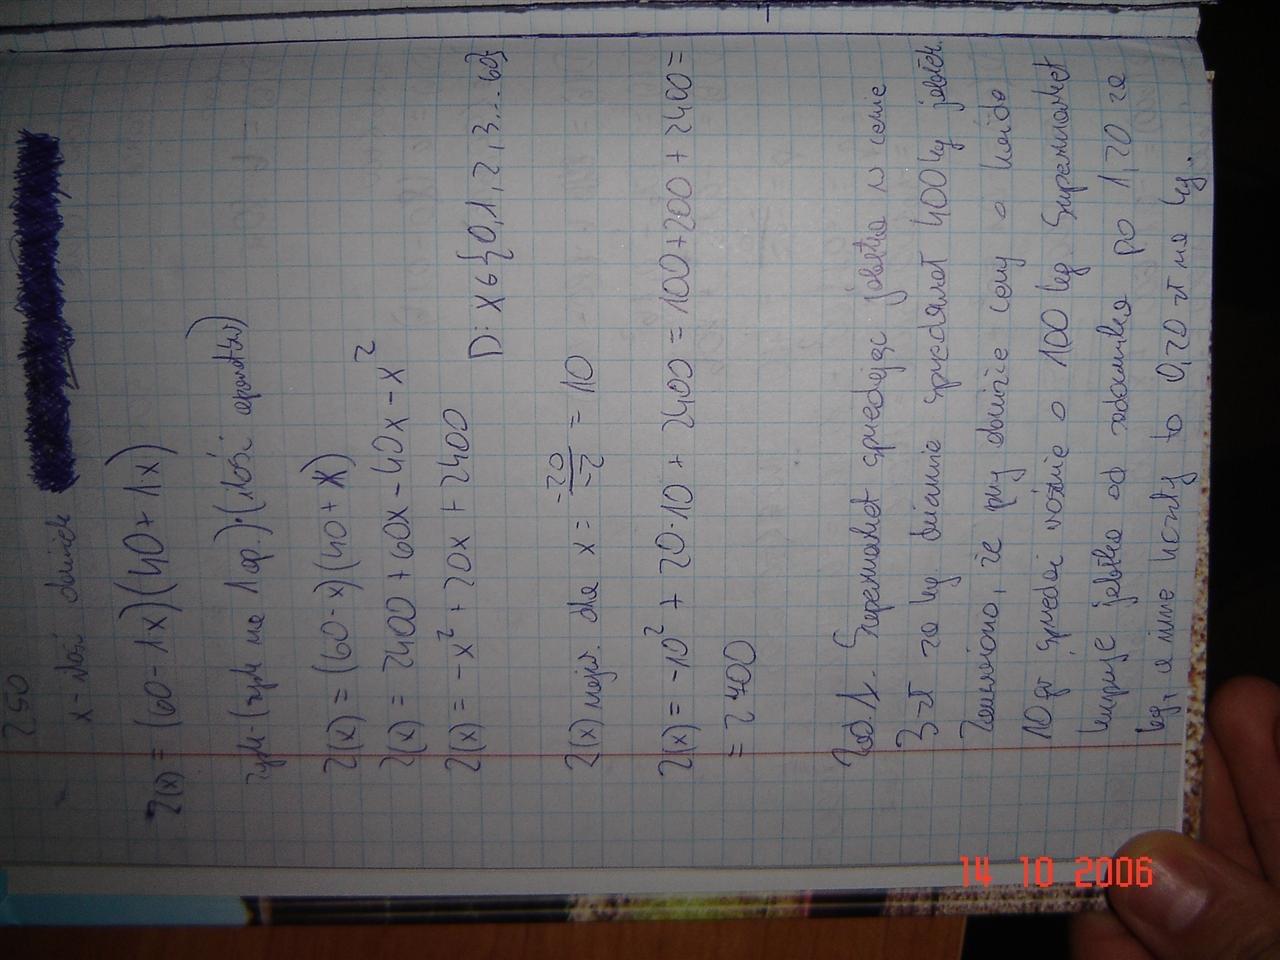 250
x - ilość obniżek
Z(x) = (60 - 1x)(40 + 1x)
Zysk - (zysk na 1 ap.)·(ilość aparatów)
Z(x) = (60 - x)(40 + x)
Z(x) = 2400 + 60x - 40x - x²
Z(x) = -x² + 20x + 2400
D: x ∈ {0, 1, 2, 3 ... 60}
Z(x) najw. dla x = -20/-2 = 10
Z(x) = -10² + 20·10 + 2400 = 100 + 200 + 2400 =
= 2400
Zad. 1. Supermarket sprzedając jabłka w cenie
3 zł za kg. dziennie sprzedawał 400 kg jabłek.
Zauważono, że przy obniżce ceny o każde
10 gr sprzedaż rośnie o 100 kg. Supermarket
kupuje jabłka od sadownika po 1,20 za
kg, a inne koszty to 0,20 zł na kg.
14 10 2006